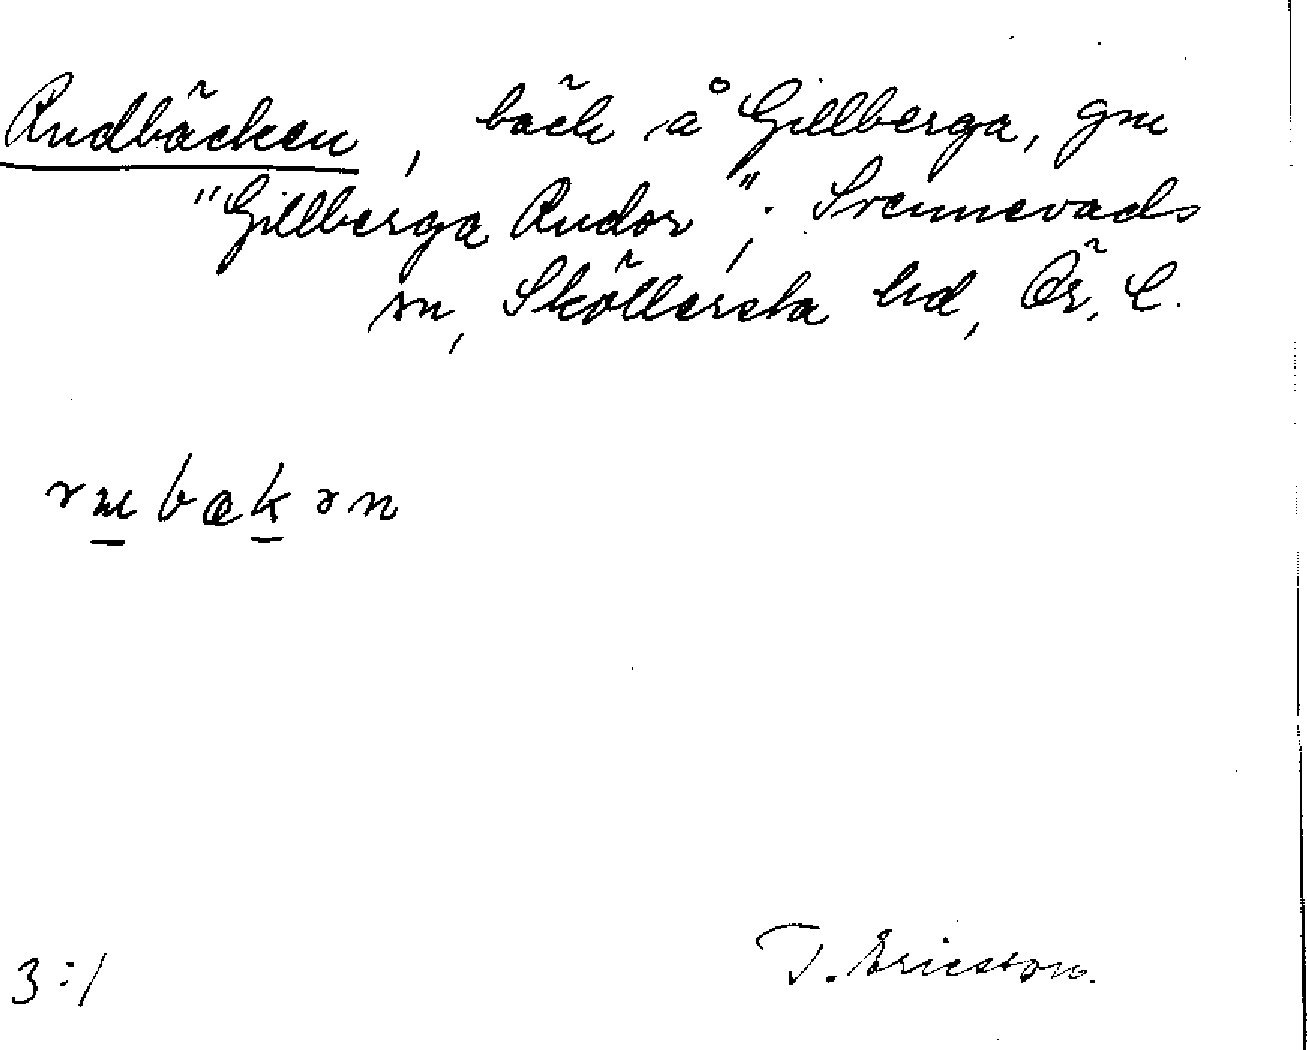 Rudbäcken, bäck å Gillberga, gm
"Gillberga Rudor", Svennevads
sn, Sköllersta hd, Ör. l.
rubækən
T. Ericsson.
3:1